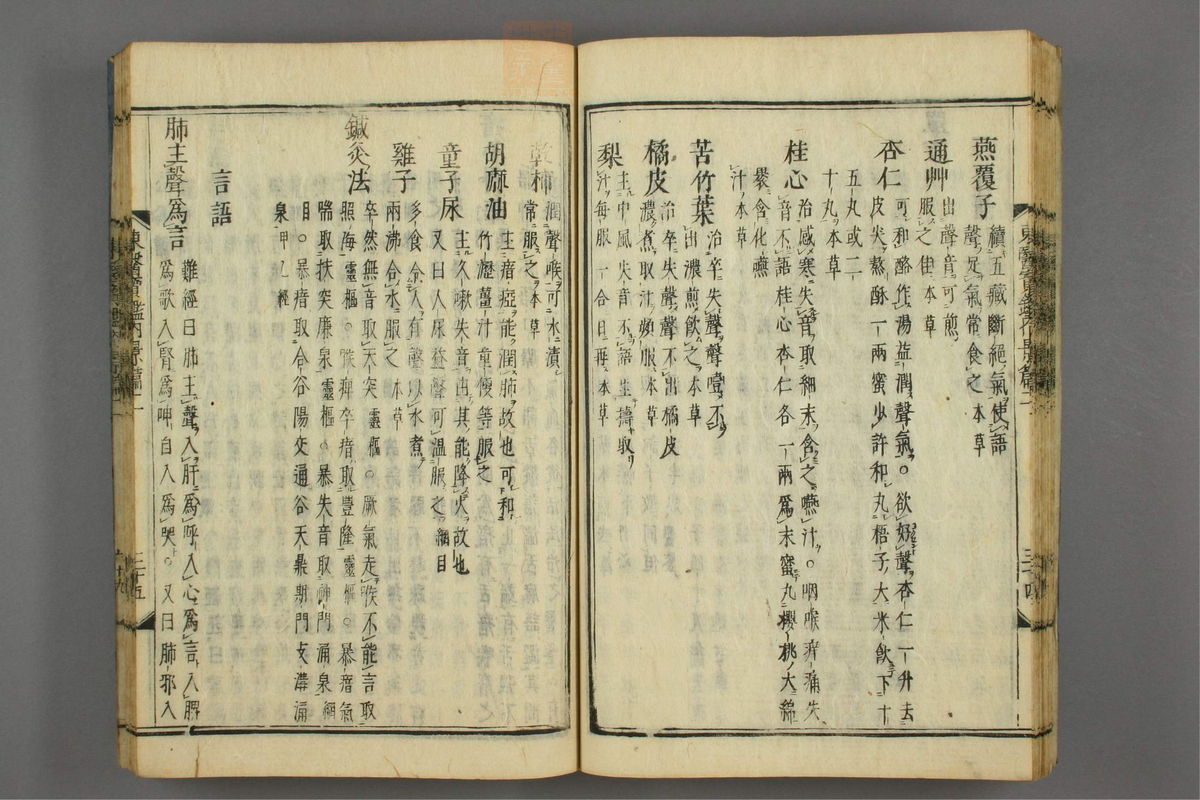 燕覆子
續五藏斷絕氣使語
聲足氣常食之本草
通艸
出聲音可煎
服之佳本草
杏仁
可和酪作湯益潤聲氣○欲好聲杏仁一升去
皮尖熬酥一兩蜜少許和丸梧子大米飮下十
五丸或二
十丸本草
桂心
治感寒失音取細末含之嚥汁○咽喉痺痛失
音不語桂心杏仁各一兩爲末蜜丸櫻桃大綿
裹含化嚥
汁本草
苦竹葉
治卒失聲聲噎不
出濃煎飮之本草
橘皮
治卒失聲聲不出橘皮
濃煮取汁頻服本草
梨
主中風失音不語生擣取
汁每服一合日再本草
乾柿
潤聲喉可水漬
常服之本草
胡麻油
主瘖瘂能潤肺故也可和
竹瀝薑汁童便等服之
童子尿
主久嗽失音也其能降火故也
又曰人尿益聲可溫服之綱目
雞子
多食令人有聲以水煮
兩沸合水服之本草
鍼灸法
卒然無音取天突靈樞○厥氣走喉不能言取
照海靈樞○喉痺卒瘖取豐隆靈樞○暴瘖氣
哽取扶突廉泉靈樞○暴失音取神門涌泉綱
目○暴瘖取合谷陽交通谷天鼎期門支溝涌
泉甲乙經
言語
肺主聲爲言
難經曰肺主聲入肝爲呼入心爲言入脾
爲歌入腎爲呻自入爲哭○又曰肺邪入
東醫寶鑑內景篇二
三十五